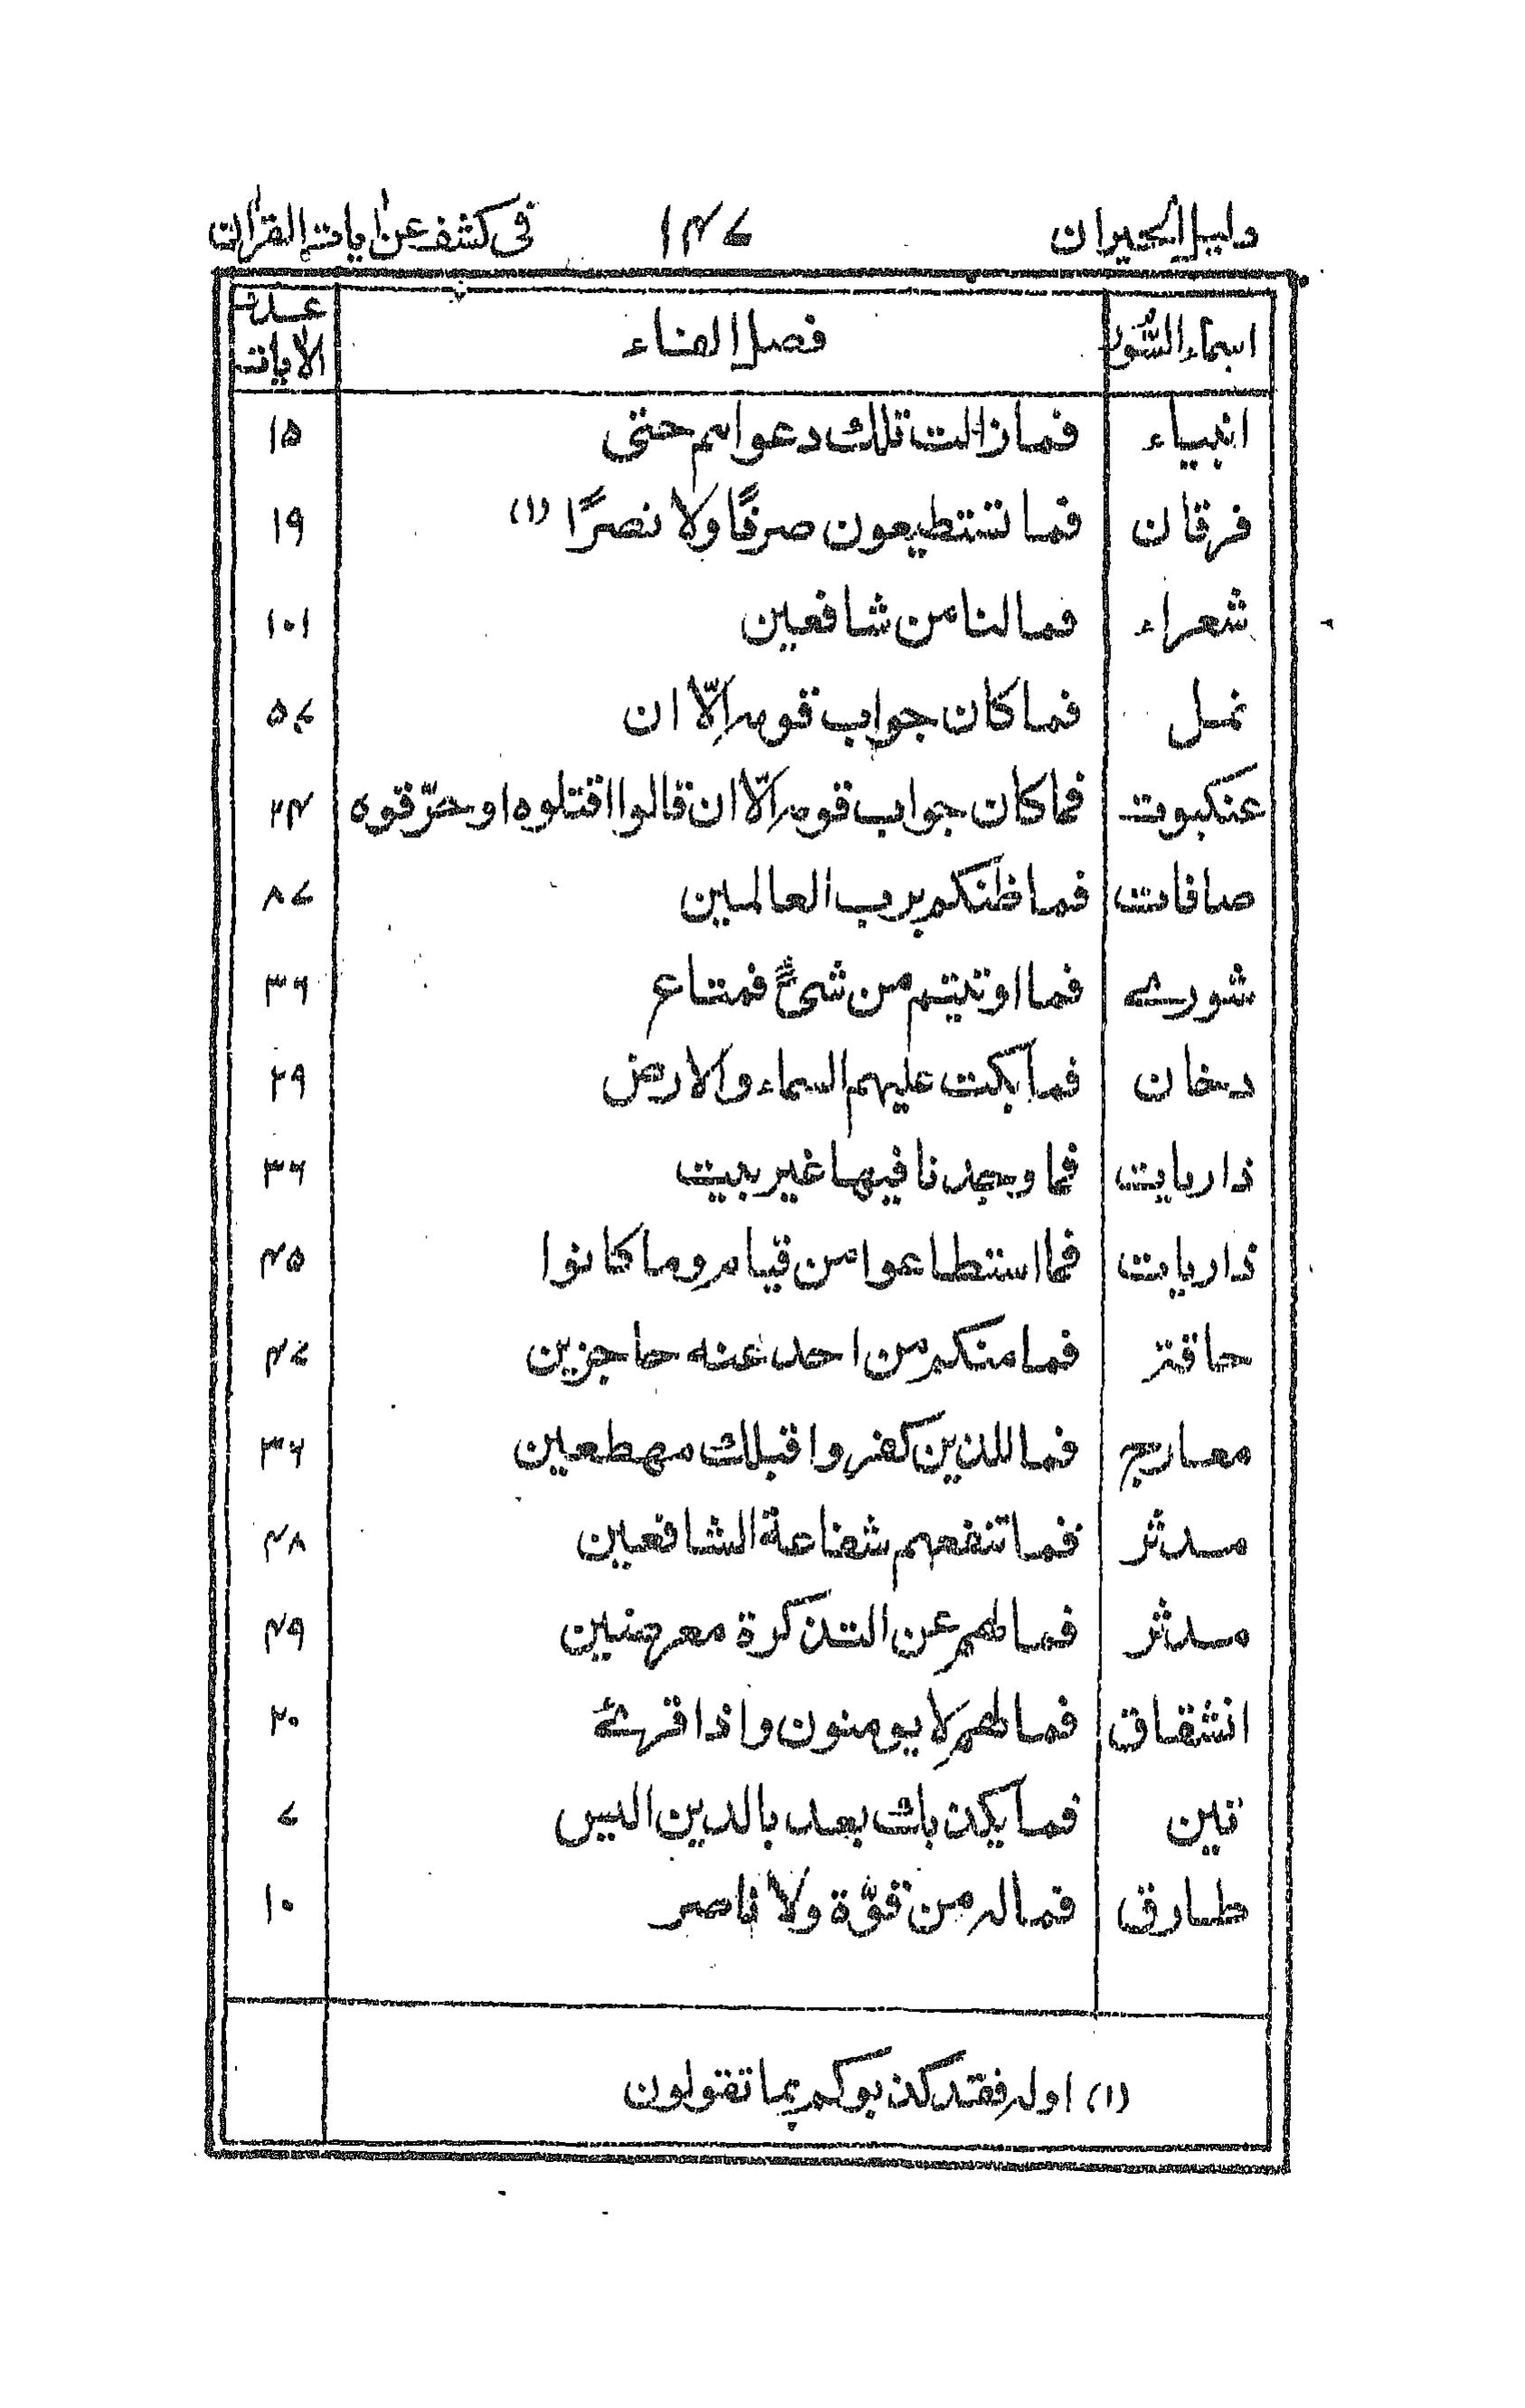 دليل الحيران ۱۴۷ فى كشف عن اٰيات القراٰن
اسماء السُّور فصل الفاء عدة الآيات
انبياء فما زالت تلك دعواهم حتى ۱۵
فرقان فما تستطيعون صرفًا ولا نصرًا (۱) ۱۹
شعراء فما لنا من شافعين ۱۰۱
نمل فما كان جواب قومه الّا ان ۵۷
عنكبوت فما كان جواب قومه الّا ان قالوا اقتلوه او حرّقوه ۲۴
صافات فما ظنكم برب العالمين ۸۷
شورے فما اوتيتم من شئ فمتاع ۳۶
دخان فما بكت عليهم السماء والارض ۲۹
ذاريات فما وجدنا فيها غير بيت ۳۶
ذاريات فما استطاعوا من قيام وما كانوا ۴۵
حاقة فما منكم من احد عنه حاجزين ۴۷
معارج فما للذين كفروا قبلك مهطعين ۳۶
مدثر فما تنفعهم شفاعة الشافعين ۴۸
مدثر فما لهم عن التذكرة معرضين ۴۹
انشقاق فما لهم لا يومنون واذا قرئ ۲۰
تين فما يكذبك بعد بالدين اليس ۷
طارق فما له من قوّة ولا ناصر ۱۰
(۱) اوله فقد كذبوكم بما تقولون